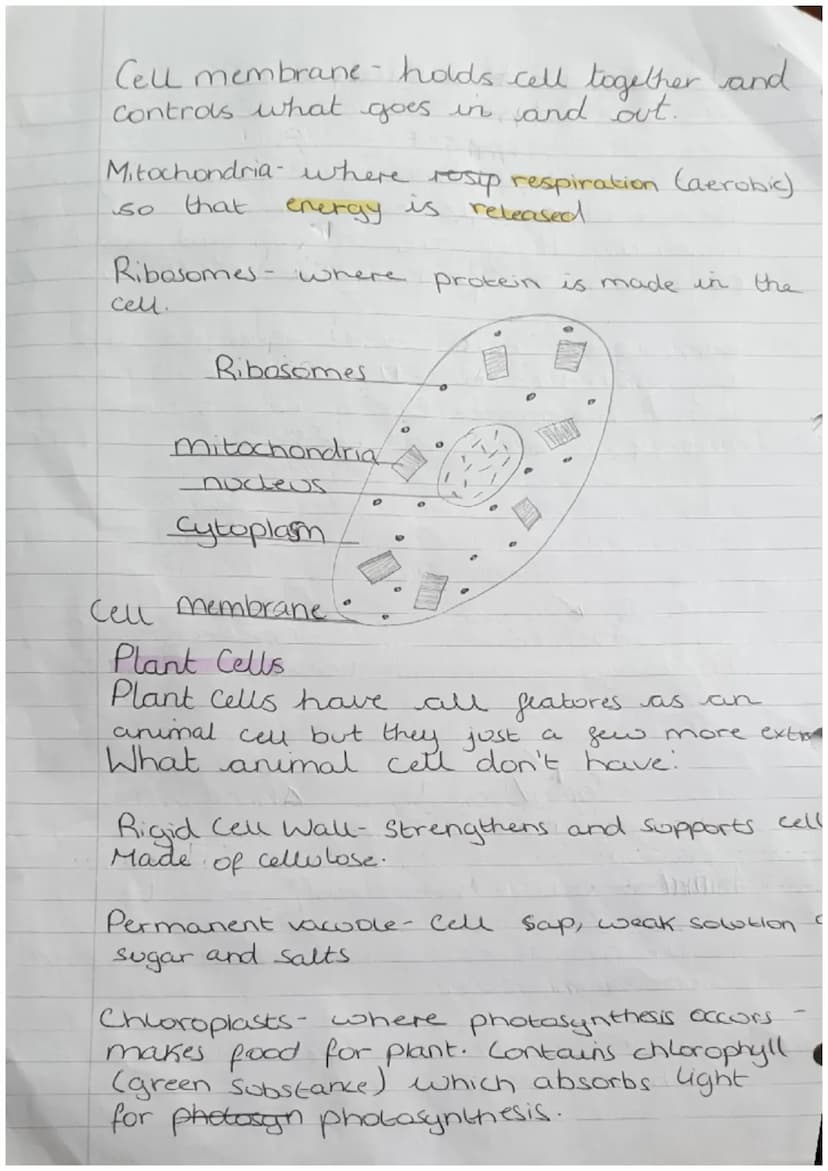 Cell membrane - holds cell together and
controls what goes in and out.
Mitochondria - where resip respiration (aerobic)
so that energy is released
Ribosomes - where protein is made in the
cell.
Ribosomes
Mitochondria
nucleus
Cytoplasm
Cell membrane
Plant Cells
Plant cells have all featores as an
animal cell but they just a few more extra
What animal cell don't have:
Rigid Cell Wall - Strengthens and supports cell
Made of cellulose.
Permanent vacuole - Cell sap, weak solution
sugar and salts
Chloroplasts - where photosynthesis occurs -
makes food for plant. Contains chlorophyll
(green substance) which absorbs light
for photosyn photosynthesis.